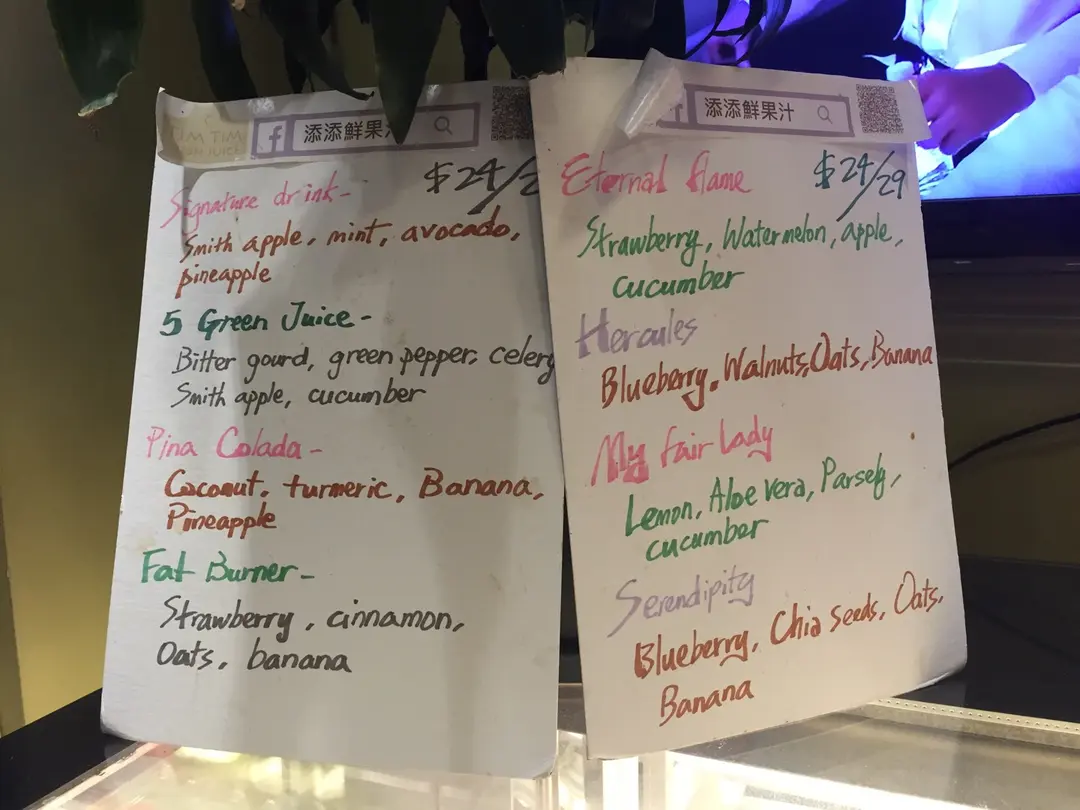 TIM TIM
添添鮮果汁
$24/2
Signature drink-
Smith apple, mint, avocado,
pineapple
5 Green Juice-
Bitter gourd, green pepper, celery
Smith apple, cucumber
Pina Colada-
Coconut, turmeric, Banana,
Pineapple
Fat Burner-
Strawberry, cinnamon,
Oats, banana
f 添添鮮果汁
Eternal flame $24/29
Strawberry, Watermelon, apple,
cucumber
Hercules
Blueberry, Walnuts, Oats, Banana
My fair lady
Lemon, Aloe vera, Parsely,
cucumber
Serendipity
Blueberry, Chia seeds, Oats,
Banana